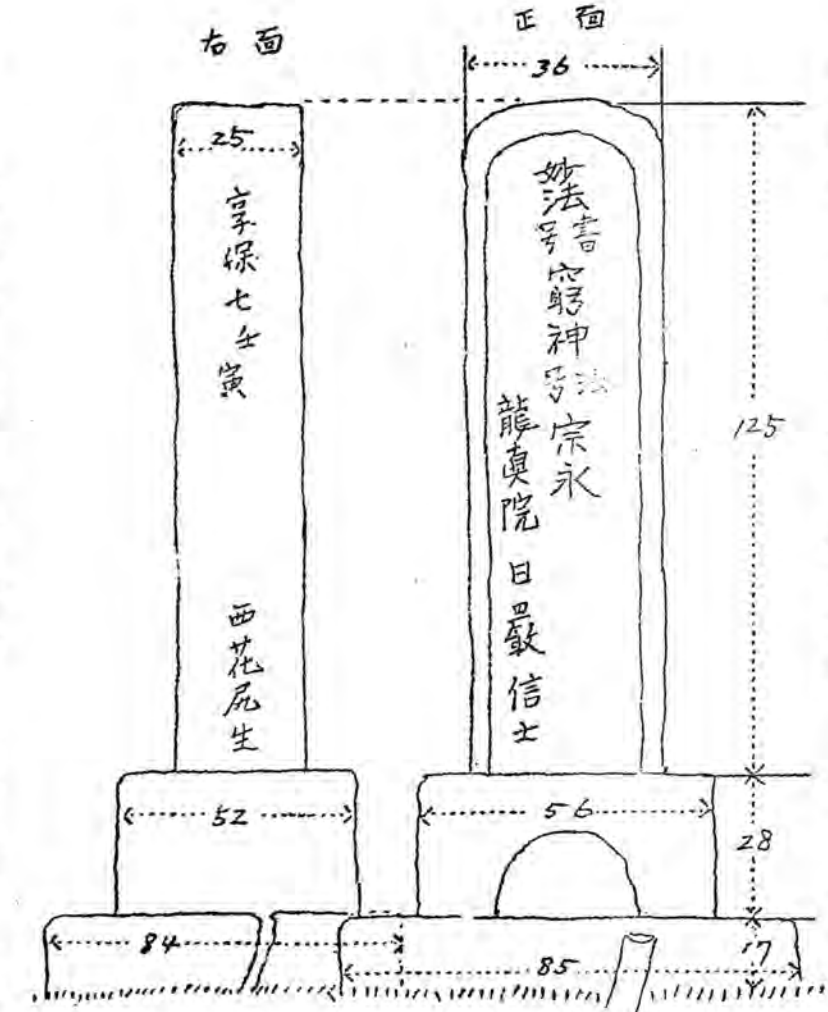 右面
正面
36
25
享保七壬寅
西花尻生
妙法書号窮神法号宗永
龍真院 日嚴信士
125
52
56
28
84
85
17